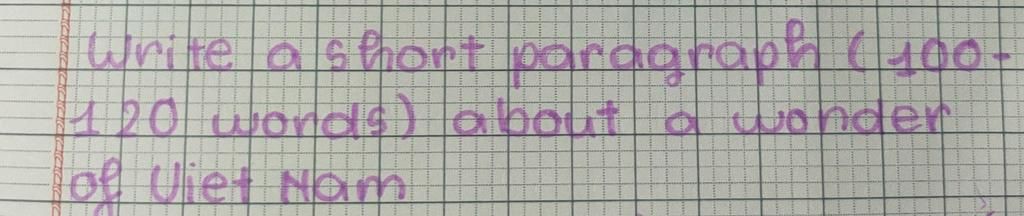 Write a short paragraph (100-
120 words) about a wonder
of Viet Nam